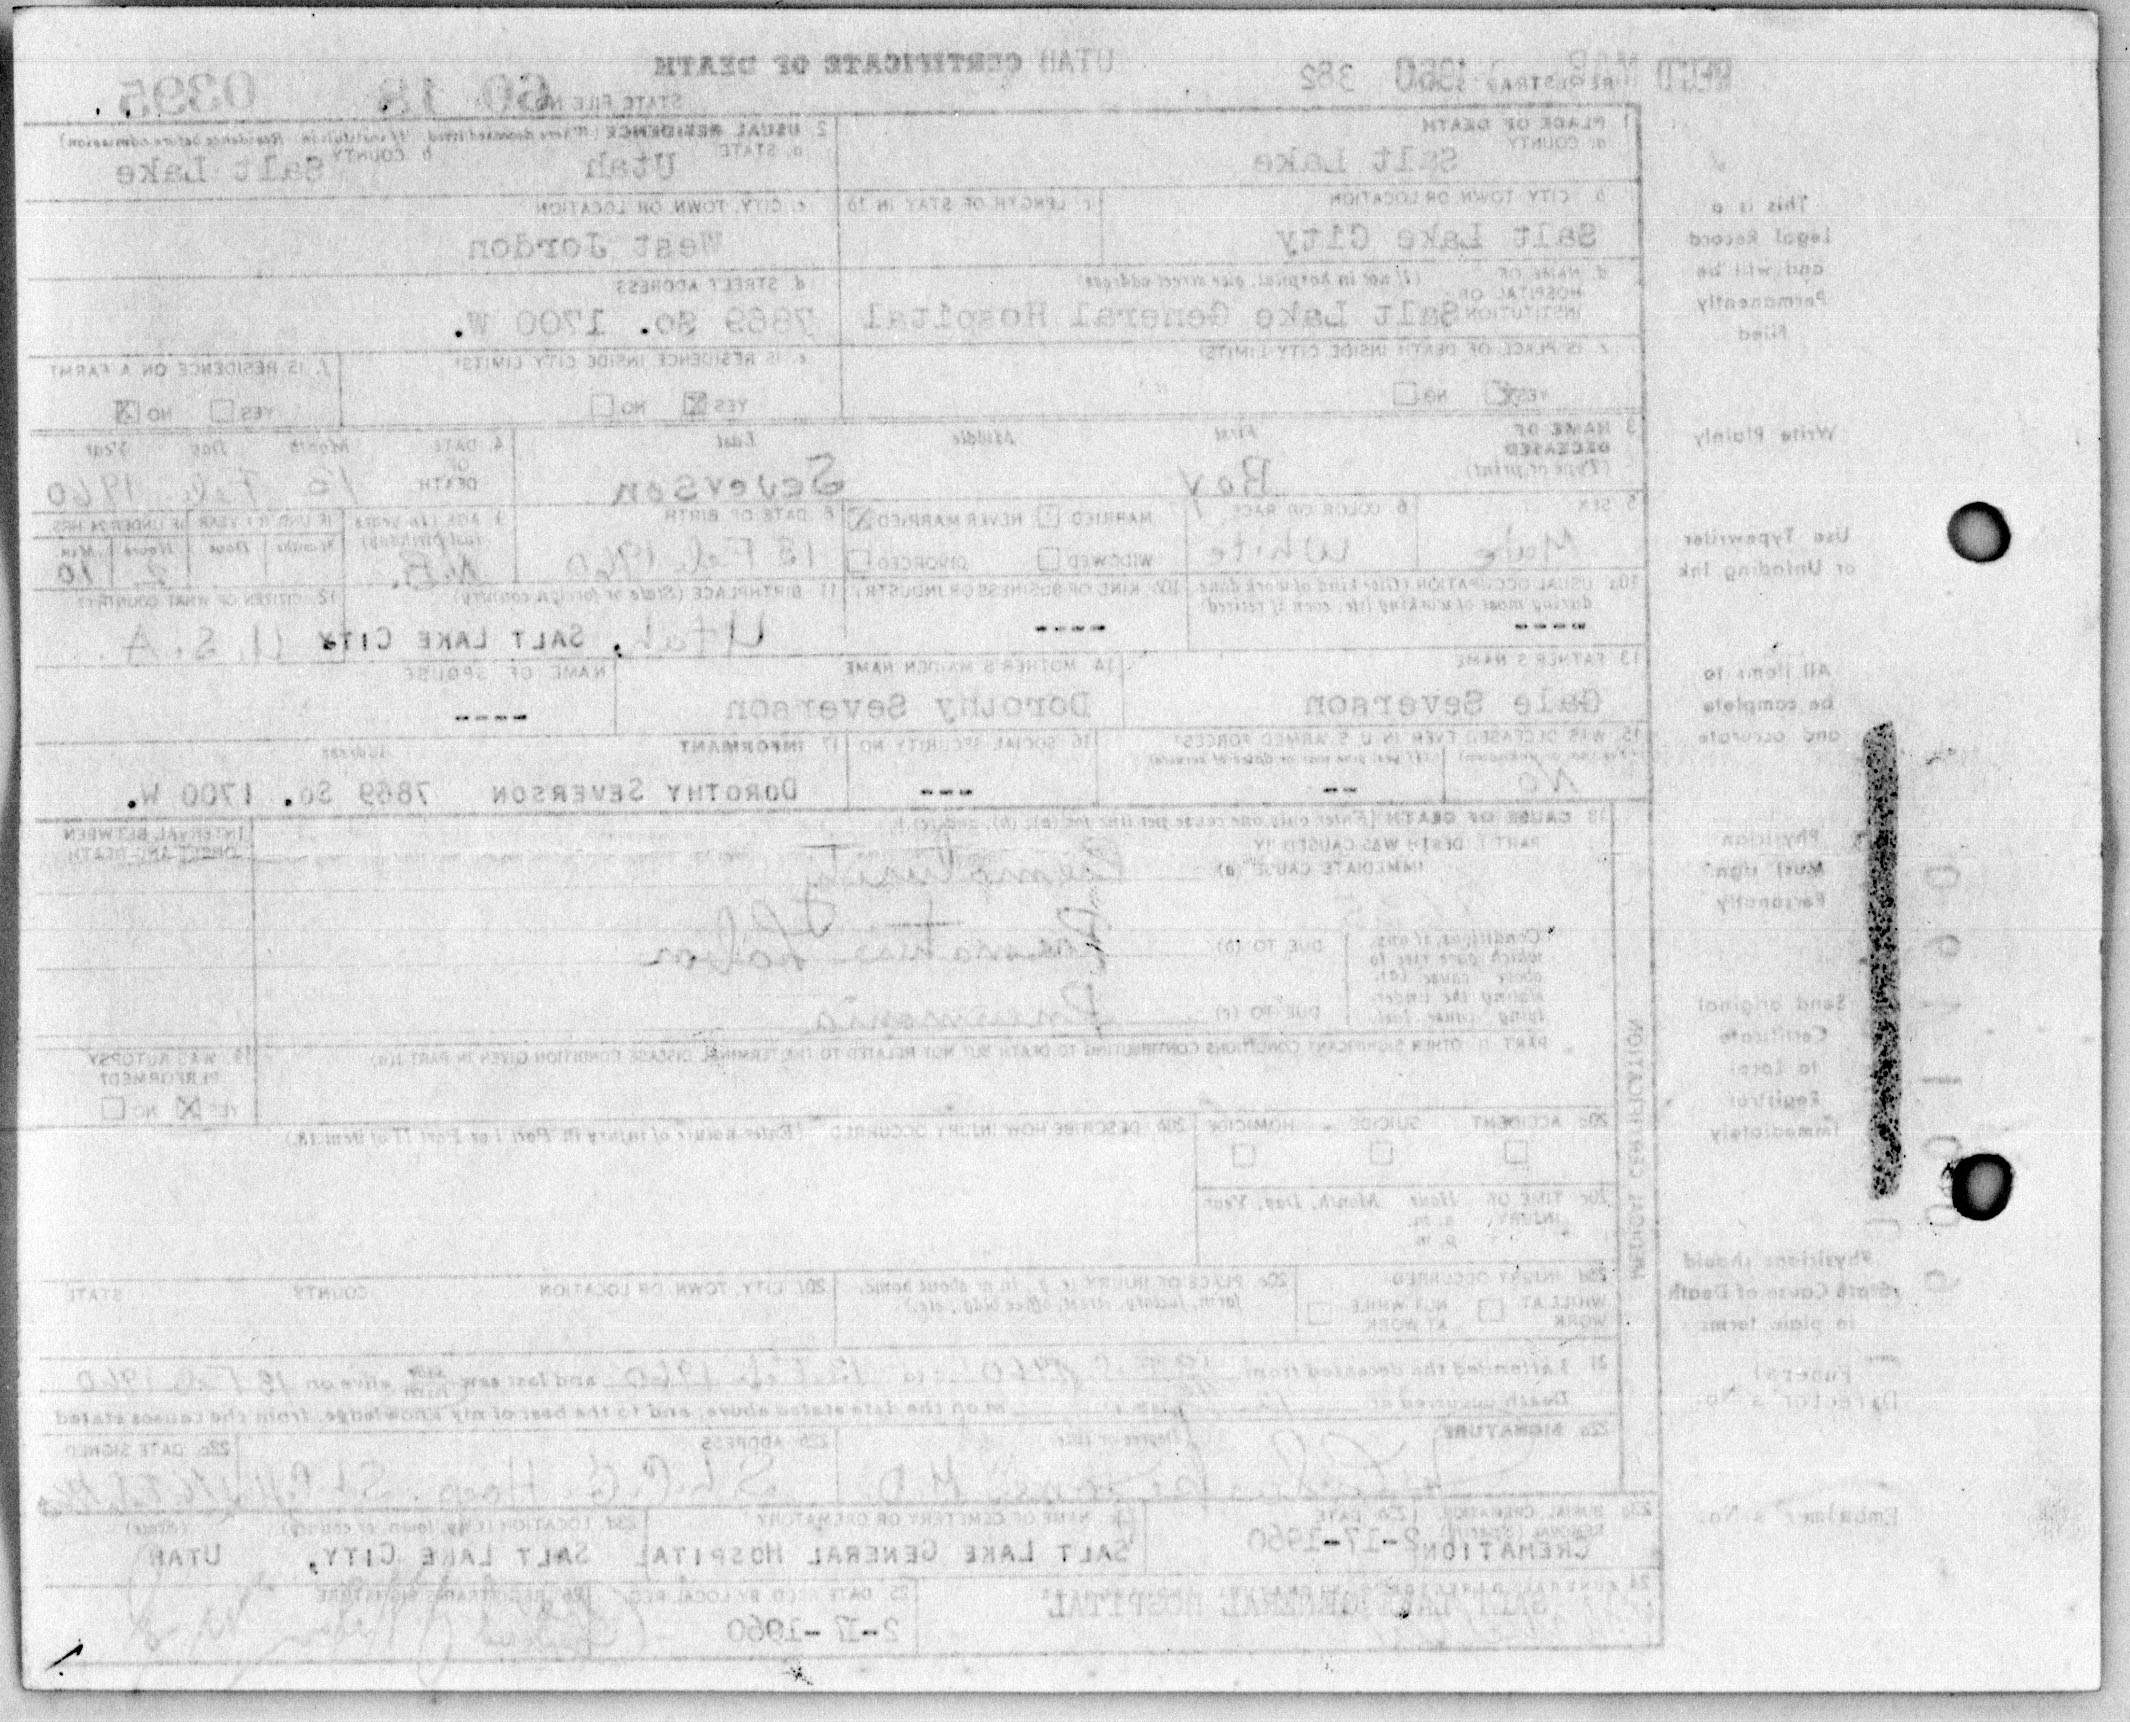 REC'D MAR 1960
REGISTRAR'S NO. 382
UTAH CERTIFICATE OF DEATH
STATE FILE NO. 60 18 0395
1 PLACE OF DEATH
a. COUNTY
Salt Lake
2 USUAL RESIDENCE (Where deceased lived. If institution: Residence before admission)
a. STATE
Utah
b COUNTY
Salt Lake
b CITY TOWN OR LOCATION
Salt Lake City
c LENGTH OF STAY IN 1b
c. CITY, TOWN OR LOCATION
West Jordon
d. NAME OF HOSPITAL OR INSTITUTION
(If not in hospital, give street address)
Salt Lake General Hospital
d STREET ADDRESS
7869 So. 1700 W.
e IS PLACE OF DEATH INSIDE CITY LIMITS?
YES NO
e. IS RESIDENCE INSIDE CITY LIMITS?
YES NO
f. IS RESIDENCE ON A FARM?
YES NO
3 NAME OF DECEASED
(Type or print)
First Middle Last
Boy Severson
4. DATE OF DEATH
Month Day Year
Feb. 1960
5 SEX
Male
6 COLOR OR RACE
White
7 MARRIED NEVER MARRIED
WIDOWED DIVORCED
8 DATE OF BIRTH
15 Feb. 1960
9 AGE (In years last birthday)
N.B.
IF UNDER 1 YEAR
Months Days
IF UNDER 24 HRS.
Hours Min.
2 10
10a USUAL OCCUPATION (Give kind of work done during most of working life, even if retired)
----
10b KIND OF BUSINESS OR INDUSTRY
----
11 BIRTHPLACE (State or foreign country)
Utah, SALT LAKE CITY
12 CITIZEN OF WHAT COUNTRY?
U. S. A.
13 FATHER'S NAME
Gale Severson
14 MOTHER'S MAIDEN NAME
Dorothy Severson
NAME OF SPOUSE
----
15 WAS DECEASED EVER IN U. S. ARMED FORCES?
(Yes, no, or unknown) (If yes, give war or dates of service)
No --
16 SOCIAL SECURITY NO
---
17 INFORMANT Address
DOROTHY SEVERSON 7869 SO. 1700 W.
18 CAUSE OF DEATH [Enter only one cause per line for (a), (b), and (c).]
INTERVAL BETWEEN ONSET AND DEATH
PART I. DEATH WAS CAUSED BY
IMMEDIATE CAUSE (a) Prematurity
Conditions, if any, which gave rise to above cause (a), stating the under-lying cause last.
DUE TO (b) Premature Labor
DUE TO (c) Pneumonia
PART II OTHER SIGNIFICANT CONDITIONS CONTRIBUTING TO DEATH BUT NOT RELATED TO THE TERMINAL DISEASE CONDITION GIVEN IN PART I(a)
19. WAS AUTOPSY PERFORMED?
YES NO
20a ACCIDENT SUICIDE HOMICIDE
20b DESCRIBE HOW INJURY OCCURRED (Enter nature of injury in Part I or Part II of item 18.)
20c TIME OF INJURY
Hour Month, Day, Year
a. m.
p. m
20d INJURY OCCURRED
WHILE AT WORK NOT WHILE AT WORK
20e PLACE OF INJURY (e. g., in or about home, farm, factory, street, office bldg., etc.)
20f CITY, TOWN OR LOCATION COUNTY STATE
21 I attended the deceased from 1960 to Feb 1960 and last saw him alive on Feb 1960
Death occurred at m on the date stated above, and to the best of my knowledge, from the causes stated
22a SIGNATURE (Degree or title)
M.D.
22b ADDRESS
22c DATE SIGNED
23a BURIAL, CREMATION, REMOVAL (Specify)
CREMATION
23b DATE
2-17-1960
23c NAME OF CEMETERY OR CREMATORY
SALT LAKE GENERAL HOSPITAL
23d LOCATION (City, town, or county) (State)
SALT LAKE CITY, UTAH
24 FUNERAL DIRECTOR'S SIGNATURE
SALT LAKE GENERAL HOSPITAL
25 DATE REC'D BY LOCAL REG
2-17-1960
26 REGISTRAR'S SIGNATURE
MEDICAL CERTIFICATION
This is a
Legal Record
and will be
Permanently
Filed
Write Plainly
Use Typewriter
or Unfading Ink
All items to
be complete
and accurate
Physician
Must sign
Personally
Send original
Certificate
to Local
Registrar
Immediately
Physicians should
State Cause of Death
in plain terms
Funeral
Director's No.
Embalmer's No.